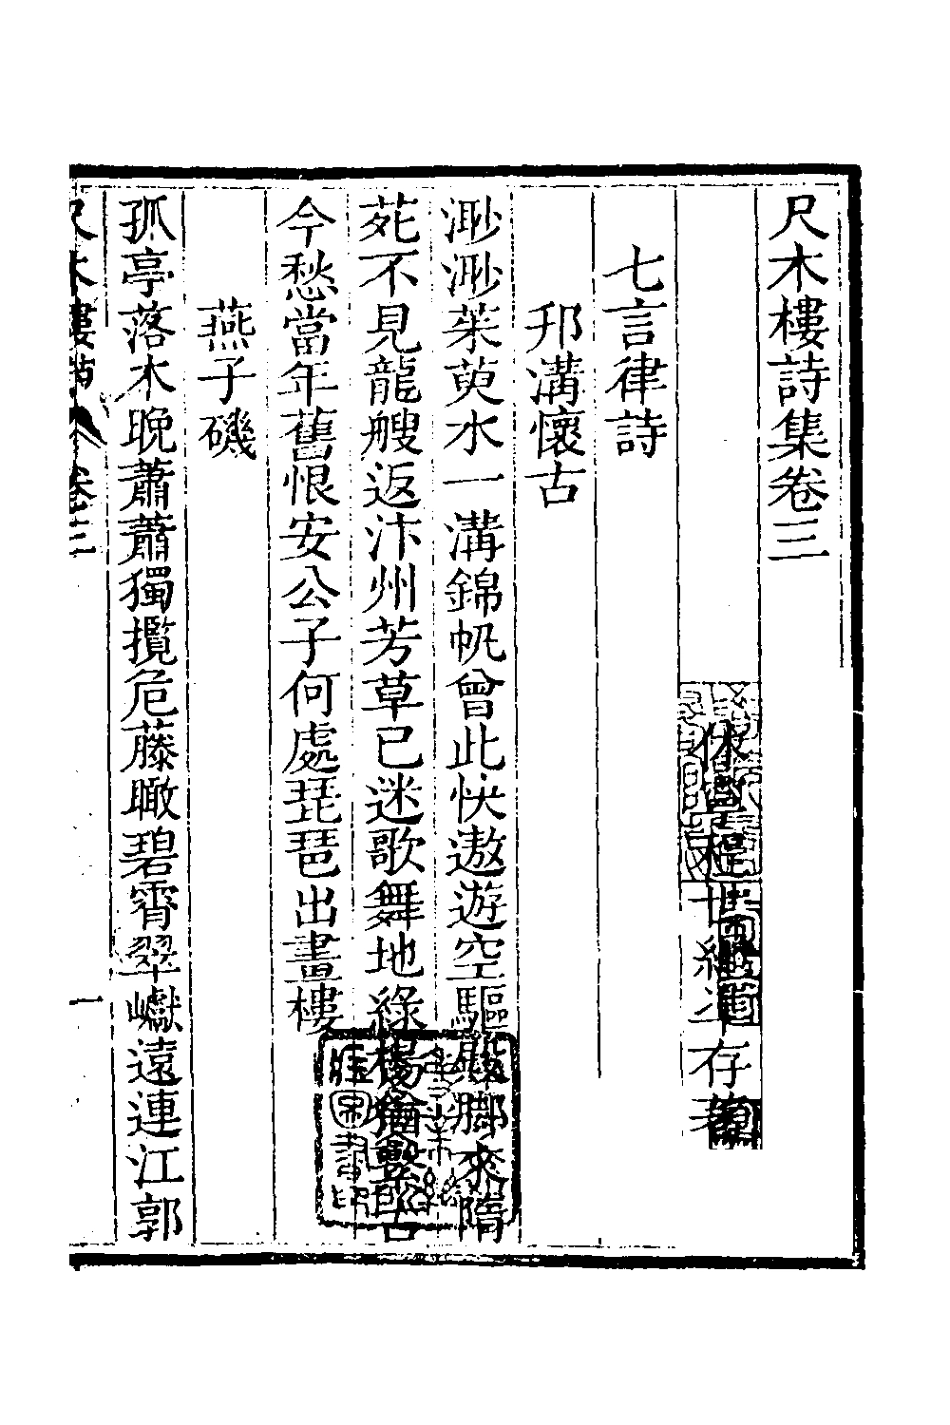 尺木樓詩集卷三
休寧程世繩準存著
七言律詩
邗溝懷古
渺渺茱萸水一溝錦帆曾此快遨遊空驅殿脚來隋
苑不見龍艘返汴州芳草已迷歌舞地綠楊猶繫古
今愁當年舊恨安公子何處琵琶出畫樓
燕子磯
孤亭落木晚蕭蕭獨攬危藤瞰碧霄翠巘遠連江郭
尺木樓詩 卷三 一